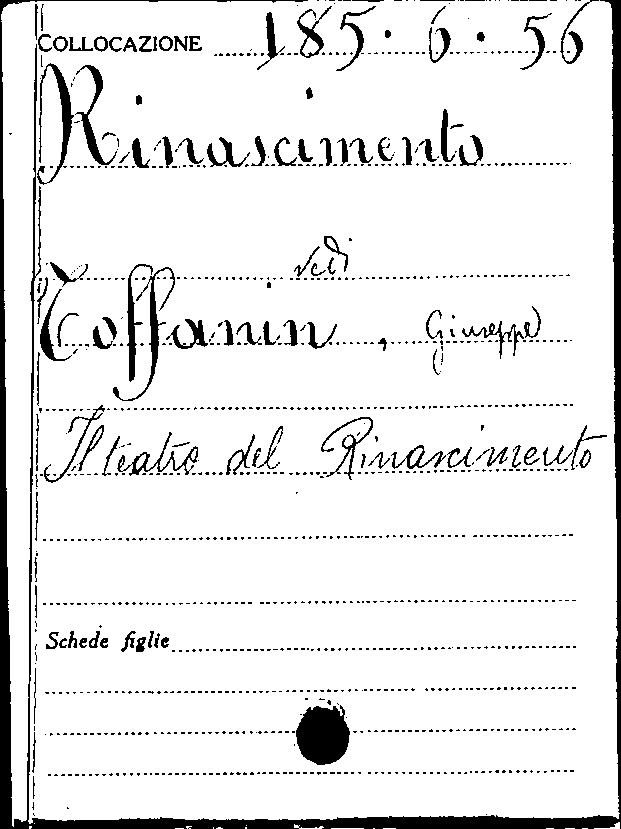 COLLOCAZIONE 185.6.56
Rinascimento
vedi
Toffanin, Giuseppe
Il teatro del Rinascimento
Schede figlie